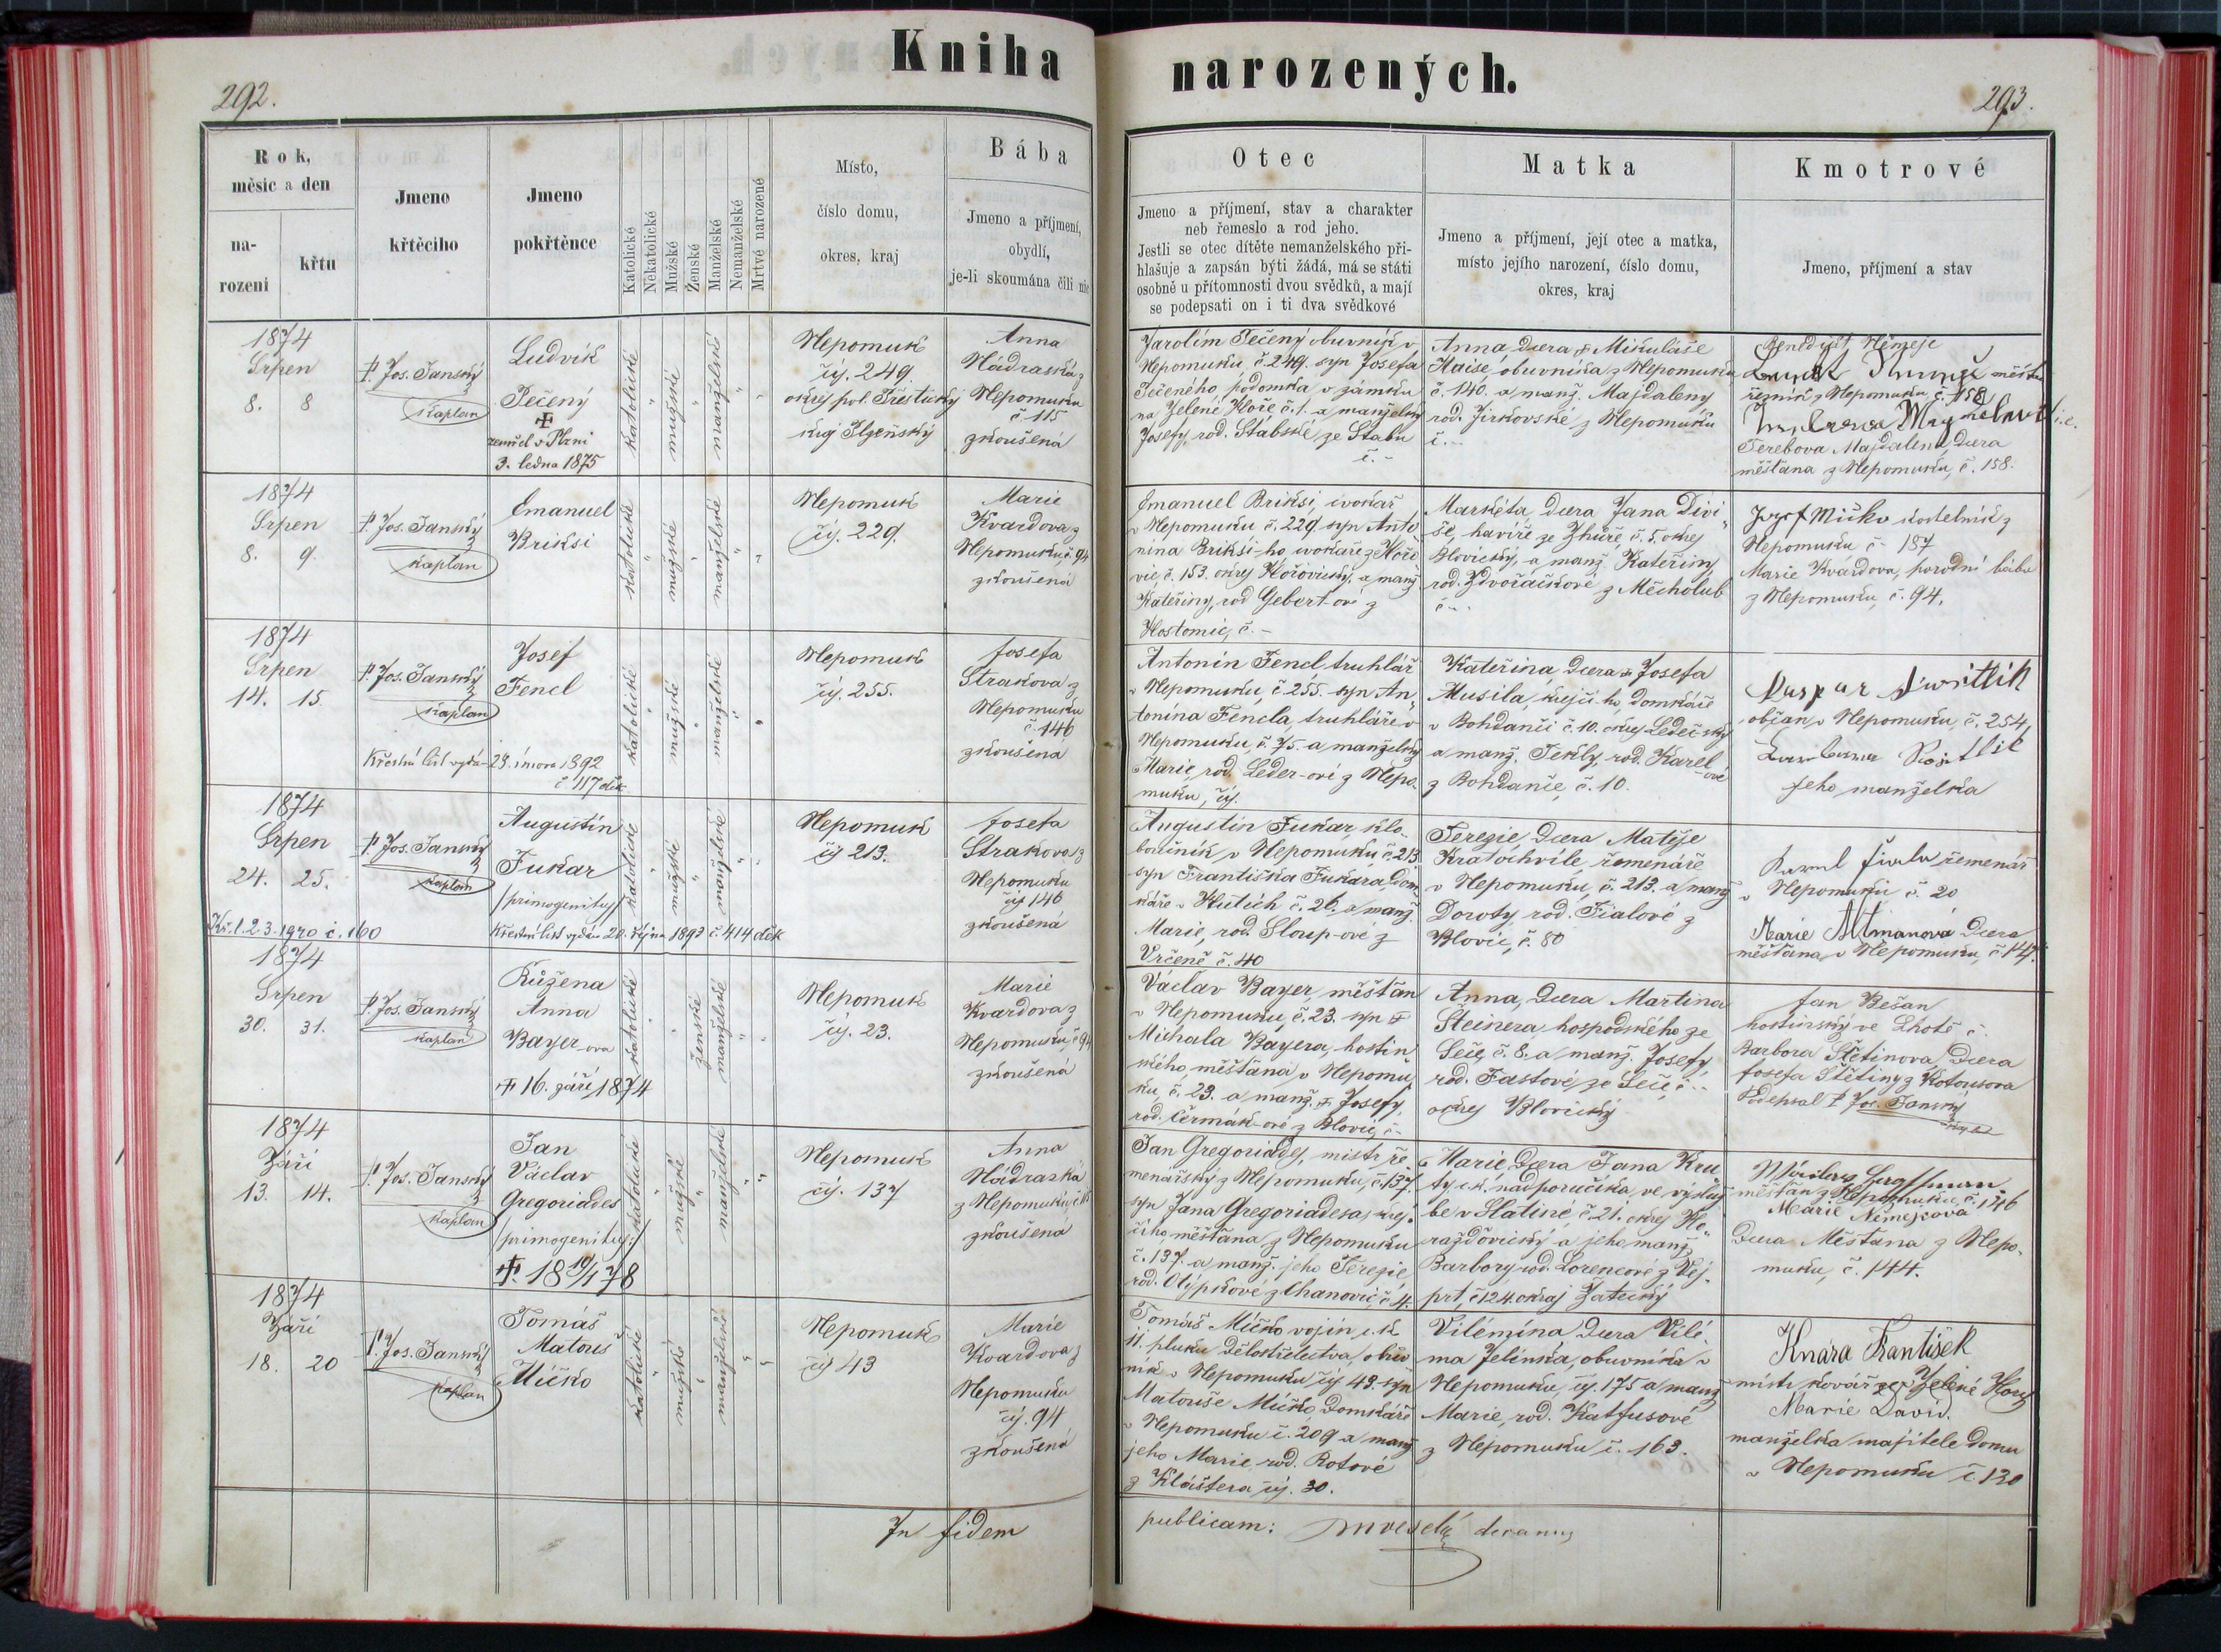 Kniha narozených.
292.
293.
Rok, měsíc a den
na-
rozeni
křtu
Jmeno
křtěcího
Jmeno
pokřtěnce
Katolické
Nekatolické
Mužské
Ženské
Manželské
Nemanželské
Mrtvé narozené
Místo,
číslo domu,
okres, kraj
Bába
Jmeno a příjmení,
obydlí,
je-li skoumána čili nic
Otec
Jmeno a příjmení, stav a charakter
neb řemeslo a rod jeho.
Jestli se otec dítěte nemanželského při-
hlašuje a zapsán býti žádá, má se státi
osobně u přítomnosti dvou svědků, a mají
se podepsati on i ti dva svědkové
Matka
Jmeno a příjmení, její otec a matka,
místo jejího narození, číslo domu,
okres, kraj
Kmotrové
Jmeno, příjmení a stav
1874
Srpen
8. 8
P. Jos. Janský
kaplan
Ludvík
Pečený
zemřel v Plzni
3. ledna 1875
katolické
mužské
manželské
Nepomuk
čís. 249.
okres pol. Přeštický
kraj Plzeňský
Anna
Nádraská z
Nepomuku
č 115
zkoušená
Jarolím Pečený obuvník v
Nepomuku č. 249. syn Josefa
Pečeného, podomka v zámku
na Zelené Hoře č. 1. a manželky
Josefy, rod. Stabské ze Stabu
č. -
Anna dcera Mikuláše
Haise, obuvníka z Nepomuku
č. 140. a manž. Majdaleny
rod. Jirkovské z Nepomuku
č. -
Benedikt Němejc
řezník z Nepomuku č. 158
Terebova Majdalena, dcera
měšťana z Nepomuku, č. 158.
1874
Srpen
8. 9.
P. Jos. Janský
kaplan
Emanuel
Briksi
katolické
mužské
manželské
Nepomuk
čís. 229.
Marie
Kvardova z
Nepomuku č. 94
zkoušená
Emanuel Briksi, cvokař
v Nepomuku č. 229 syn Anto-
nína Briksi-ho, cvokaře z Hořo-
vic, č. 153. okres Hořovický, a manž
Kateřiny, rod Gebert-ové z
Hostomic, č. -
Markéta, dcera Jana Divi-
še, havíře ze Zhůře, č. 5. okres
Blovický, a manž Kateřiny,
rod. Zdvořáčkové z Měcholub
č -
Jozef Mičko kostelník z
Nepomuku č. 187
Marie Kvardova, porodní bába
z Nepomuku, č. 94.
1874
Srpen
14. 15.
P. Jos. Janský
kaplan
Josef
Fencl
Křestní list vydán 23. února 1892
č 117 děk
katolické
mužské
manželské
Nepomuk
čís. 255.
Josefa
Strakova z
Nepomuku
č. 146
zkoušena
Antonín Fencl, truhlář
v Nepomuku, č. 255. syn An-
tonína Fencla, truhláře v
Nepomuku, č. 75. a manželky
Marie, rod. Leder-ové z Nepo-
muku, čís.
Kateřina, dcera Josefa
Musila, krejčího, domkáře
v Bohdanči č. 10. okres Ledečský
a manž. Tekly, rod. Karel-ové
z Bohdanče, č. 10.
občan v Nepomuku, č. 254,
jeho manželka
1874
Srpen
24. 25.
P. Jos. Janský
kaplan
Kř. l. 2.3.1940 č. 160
Augustin
Fukar
/primogenitus/
Křestní list vydán 20. října 1893 č 414 děk
katolické
mužské
manželské
Nepomuk
čís 213.
Josefa
Strakova z
Nepomuku
čís 146
zkoušená
Augustin Fukar, klo-
boučník v Nepomuku č. 213
syn Františka Fukara, dom-
káře v Klutích č. 26. a manž.
Marie, rod. Sloup-ové z
Vrčeně č. 40
Terezie, dcera Matěje
Kratochvíle řemenáře
v Nepomuku, č. 213. a manž
Doroty, rod. Fialové z
Blovic, č. 80
Karel Fiala řemenář
v Nepomuku č. 20
Marie Altmanová dcera
měšťana v Nepomuku, č 147.
1874
Srpen
30. 31.
P. Jos. Janský
kaplan
Růžena
Anna
Bayer-ova
+ 16. září, 1874
katolické
ženské
manželské
Nepomuk
čís. 23.
Marie
Kvardova z
Nepomuku, č 94
zkoušená
Václav Bayer, měšťan
v Nepomuku, č. 23. syn +
Michala Bayera, hostin-
ského, měšťana v Nepomu-
ku, č. 23. a manž. + Josefy,
rod. Čermák-ové z Blovic, č -
Anna, dcera Martina
Šteinera hospodského ze
Seče, č. 8. a manž. Josefy,
rod. Fastové, ze Seče, č -
okres Blovický
Jan Bešan
hostinský ve Lhotě č.
Barbora Štětinova, dcera
Josefa Štětiny z Kotousova
Podepsal P. Jos. Janský
1874
Září
13. 14.
P. Jos. Janský
kaplan
Jan
Václav
Gregoriades
/primogenitus/
+ 18 10/1 78
katolické
mužské
manželské
Nepomuk
čís. 137
Anna
Nádraská
z Nepomuku, č 115
zkoušená
Jan Gregoriades, mistr ře-
menářský z Nepomuku, č 137.
syn Jana Gregoriadesa, krej-
čího, měšťana z Nepomuku
č. 137. a manž. jeho Terezie,
rod. Olýpkové z Chanovic, č 4.
Marie, dcera Jana Kru-
ty, c.k. nadporučíka, ve výsluž-
be v Slatině, č. 21. okres Ho-
raždovický a jeho manž
Barbory, rod. Lorencové z Vej-
prt, č 124. okraj Žatecký
měšťan z Nepomuku č. 146
Marie Němejcová
dcera Měšťana z Nepo-
muku, č. 144.
1874
Září
18. 20
P. Jos. Janský
kaplan
Tomáš
Matouš
Mičko
katolické
mužské
manželské
Nepomuk
čís 43
Marie
Kvardova z
Nepomuku
čís. 94
zkoušená
Tomáš Mičko vojín c.k.
11. pluku dělostřelectva, obuv-
ník v Nepomuku čís 43. syn
Matouše Mičko, domkáře
v Nepomuku č. 209 a manž
jeho Marie, rod. Rotové
z Kláštera čís. 30.
Vilémína, dcera Vilé-
ma Jelínka, obuvníka v
Nepomuku, čís. 175 a manž
Marie, rod. Katfusové
z Nepomuku č. 163.
Knára František
mistr kovář ze Zelené Hory
Marie David.
manželka majitele domu
v Nepomuku č. 130
In fidem
publicam: